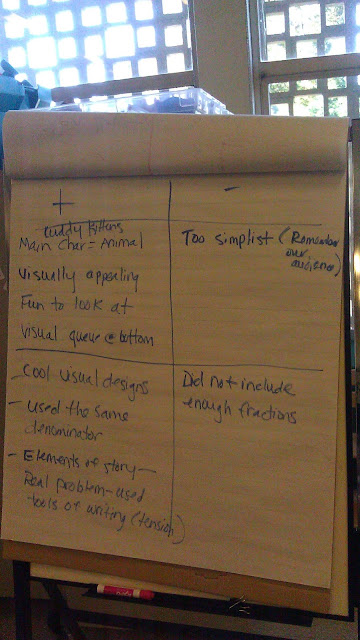 +
-
cuddy kittens
Main Char = Animal
Visually appealing
Fun to look at
Visual queue @ bottom
Too simplist (Remember
our
audience)
- Cool visual designs
- used the same
denominator
- Elements of story -
Real problem - used
tools of writing (tension)
Did not include
enough fractions